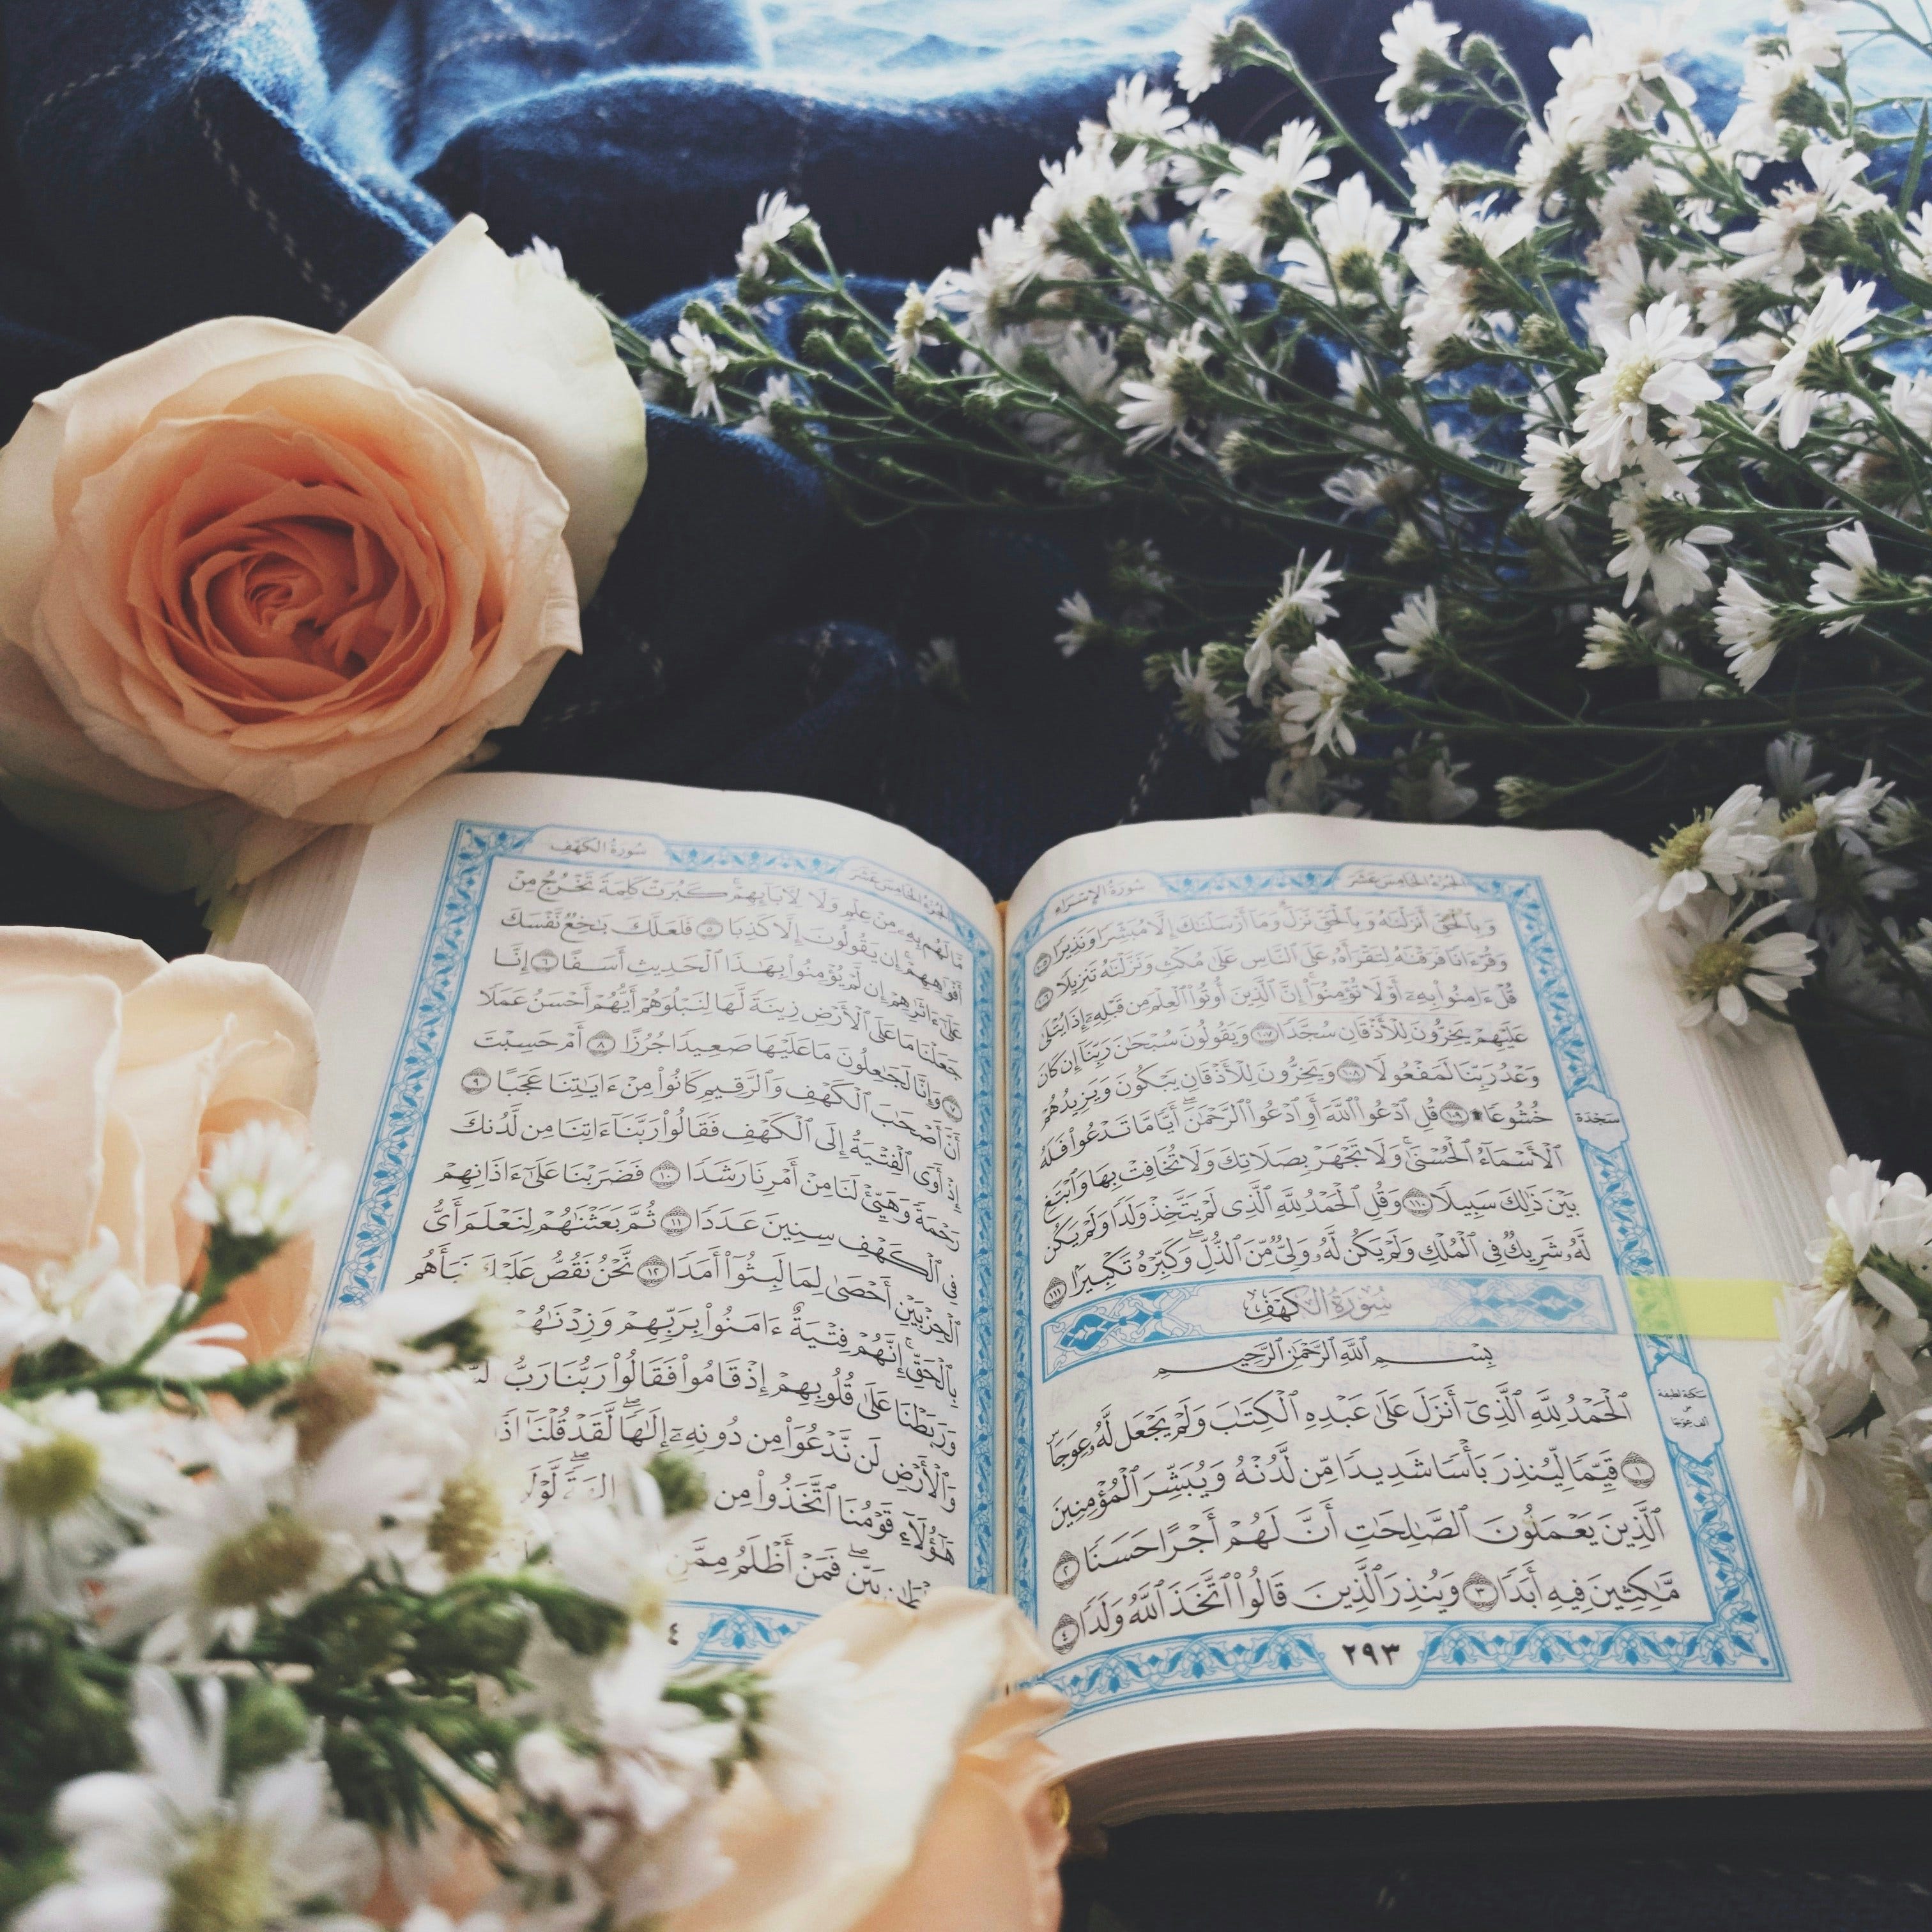 الجزء الخامس عشر
سورة الإسراء
وَبِٱلْحَقِّ أَنزَلْنَٰهُ وَبِٱلْحَقِّ نَزَلَ ۗ وَمَآ أَرْسَلْنَٰكَ إِلَّا مُبَشِّرًا وَنَذِيرًا ١٠٥
وَقُرْءَانًا فَرَقْنَٰهُ لِتَقْرَأَهُۥ عَلَى ٱلنَّاسِ عَلَىٰ مُكْثٍ وَنَزَّلْنَٰهُ تَنزِيلًا ١٠٦
قُلْ ءَامِنُوا۟ بِهِۦٓ أَوْ لَا تُؤْمِنُوٓا۟ ۚ إِنَّ ٱلَّذِينَ أُوتُوا۟ ٱلْعِلْمَ مِن قَبْلِهِۦٓ إِذَا يُتْلَىٰ
عَلَيْهِمْ يَخِرُّونَ لِلْأَذْقَانِ سُجَّدًا ١٠٧ وَيَقُولُونَ سُبْحَٰنَ رَبِّنَآ إِن كَانَ
وَعْدُ رَبِّنَا لَمَفْعُولًا ١٠٨ وَيَخِرُّونَ لِلْأَذْقَانِ يَبْكُونَ وَيَزِيدُهُمْ
خُشُوعًا ۩ ١٠٩ قُلِ ٱدْعُوا۟ ٱللَّهَ أَوِ ٱدْعُوا۟ ٱلرَّحْمَٰنَ ۖ أَيًّا مَّا تَدْعُوا۟ فَلَهُ
سجدة
ٱلْأَسْمَآءُ ٱلْحُسْنَىٰ ۚ وَلَا تَجْهَرْ بِصَلَاتِكَ وَلَا تُخَافِتْ بِهَا وَٱبْتَغِ
بَيْنَ ذَٰلِكَ سَبِيلًا ١١٠ وَقُلِ ٱلْحَمْدُ لِلَّهِ ٱلَّذِى لَمْ يَتَّخِذْ وَلَدًا وَلَمْ يَكُن
لَّهُۥ شَرِيكٌ فِى ٱلْمُلْكِ وَلَمْ يَكُن لَّهُۥ وَلِىٌّ مِّنَ ٱلذُّلِّ ۖ وَكَبِّرْهُ تَكْبِيرًۢا ١١١
سورة الكهف
بِسْمِ ٱللَّهِ ٱلرَّحْمَٰنِ ٱلرَّحِيمِ
ٱلْحَمْدُ لِلَّهِ ٱلَّذِىٓ أَنزَلَ عَلَىٰ عَبْدِهِ ٱلْكِتَٰبَ وَلَمْ يَجْعَل لَّهُۥ عِوَجَا ۜ
سكتة لطيفة
١ قَيِّمًا لِّيُنذِرَ بَأْسًا شَدِيدًا مِّن لَّدُنْهُ وَيُبَشِّرَ ٱلْمُؤْمِنِينَ
ٱلَّذِينَ يَعْمَلُونَ ٱلصَّٰلِحَٰتِ أَنَّ لَهُمْ أَجْرًا حَسَنًا ٢
مَّٰكِثِينَ فِيهِ أَبَدًا ٣ وَيُنذِرَ ٱلَّذِينَ قَالُوا۟ ٱتَّخَذَ ٱللَّهُ وَلَدًا ٤
٢٩٣
الجزء الخامس عشر
سورة الكهف
مَّا لَهُم بِهِۦ مِنْ عِلْمٍ وَلَا لِءَابَآئِهِمْ ۚ كَبُرَتْ كَلِمَةً تَخْرُجُ مِنْ
أَفْوَٰهِهِمْ ۚ إِن يَقُولُونَ إِلَّا كَذِبًا ٥ فَلَعَلَّكَ بَٰخِعٌ نَّفْسَكَ
عَلَىٰٓ ءَاثَٰرِهِمْ إِن لَّمْ يُؤْمِنُوا۟ بِهَٰذَا ٱلْحَدِيثِ أَسَفًا ٦ إِنَّا
جَعَلْنَا مَا عَلَى ٱلْأَرْضِ زِينَةً لَّهَا لِنَبْلُوَهُمْ أَيُّهُمْ أَحْسَنُ عَمَلًا
٧ وَإِنَّا لَجَٰعِلُونَ مَا عَلَيْهَا صَعِيدًا جُرُزًا ٨ أَمْ حَسِبْتَ
أَنَّ أَصْحَٰبَ ٱلْكَهْفِ وَٱلرَّقِيمِ كَانُوا۟ مِنْ ءَايَٰتِنَا عَجَبًا ٩
إِذْ أَوَى ٱلْفِتْيَةُ إِلَى ٱلْكَهْفِ فَقَالُوا۟ رَبَّنَآ ءَاتِنَا مِن لَّدُنكَ
رَحْمَةً وَهَيِّئْ لَنَا مِنْ أَمْرِنَا رَشَدًا ١٠ فَضَرَبْنَا عَلَىٰٓ ءَاذَانِهِمْ
فِى ٱلْكَهْفِ سِنِينَ عَدَدًا ١١ ثُمَّ بَعَثْنَٰهُمْ لِنَعْلَمَ أَىُّ
ٱلْحِزْبَيْنِ أَحْصَىٰ لِمَا لَبِثُوٓا۟ أَمَدًا ١٢ نَّحْنُ نَقُصُّ عَلَيْكَ نَبَأَهُم
بِٱلْحَقِّ ۚ إِنَّهُمْ فِتْيَةٌ ءَامَنُوا۟ بِرَبِّهِمْ وَزِدْنَٰهُمْ
وَرَبَطْنَا عَلَىٰ قُلُوبِهِمْ إِذْ قَامُوا۟ فَقَالُوا۟ رَبُّنَا رَبُّ
وَٱلْأَرْضِ لَن نَّدْعُوَا۟ مِن دُونِهِۦٓ إِلَٰهًا ۖ لَّقَدْ قُلْنَآ إِذًا
هَٰٓؤُلَآءِ قَوْمُنَا ٱتَّخَذُوا۟ مِن
بَيِّنٍ ۖ فَمَنْ أَظْلَمُ مِمَّنِ